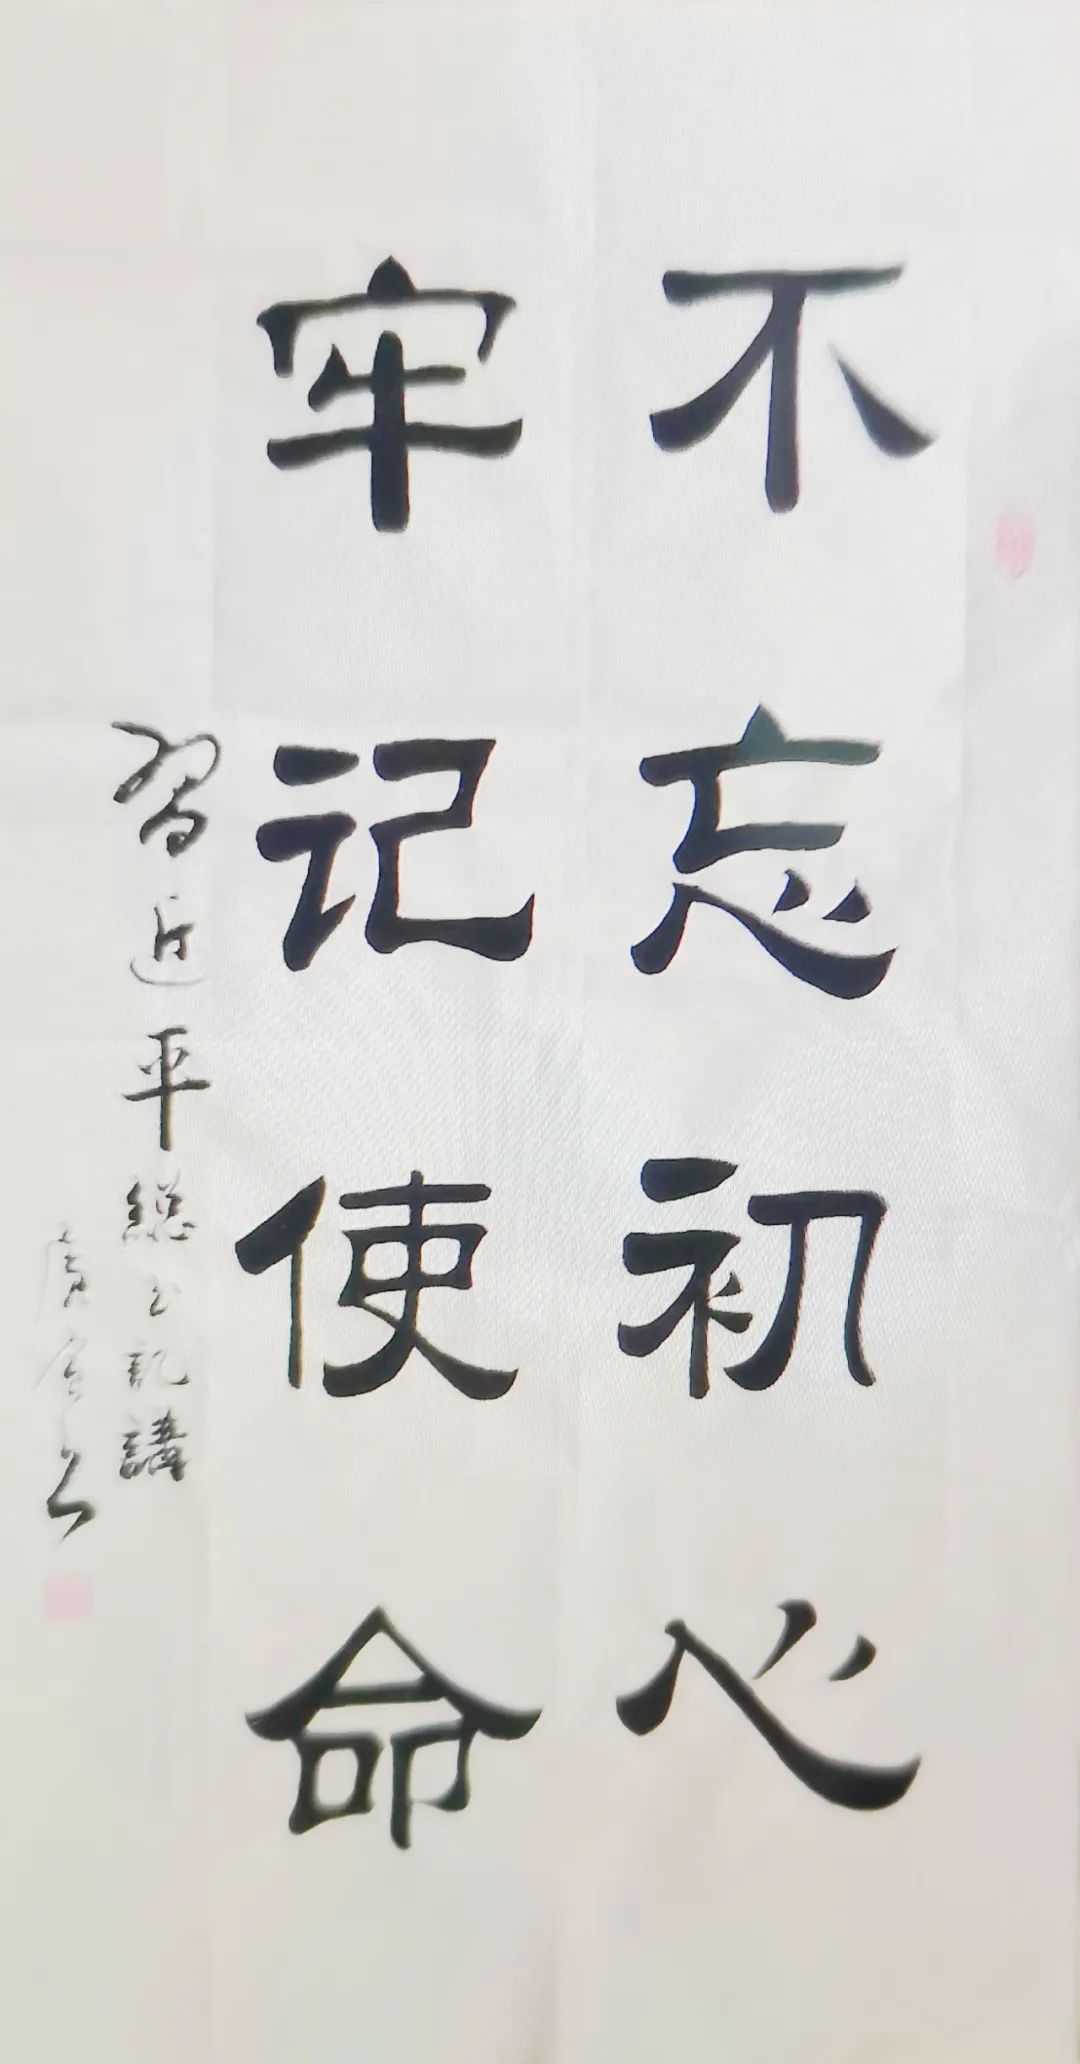 不忘初心
牢记使命
習近平總书記講